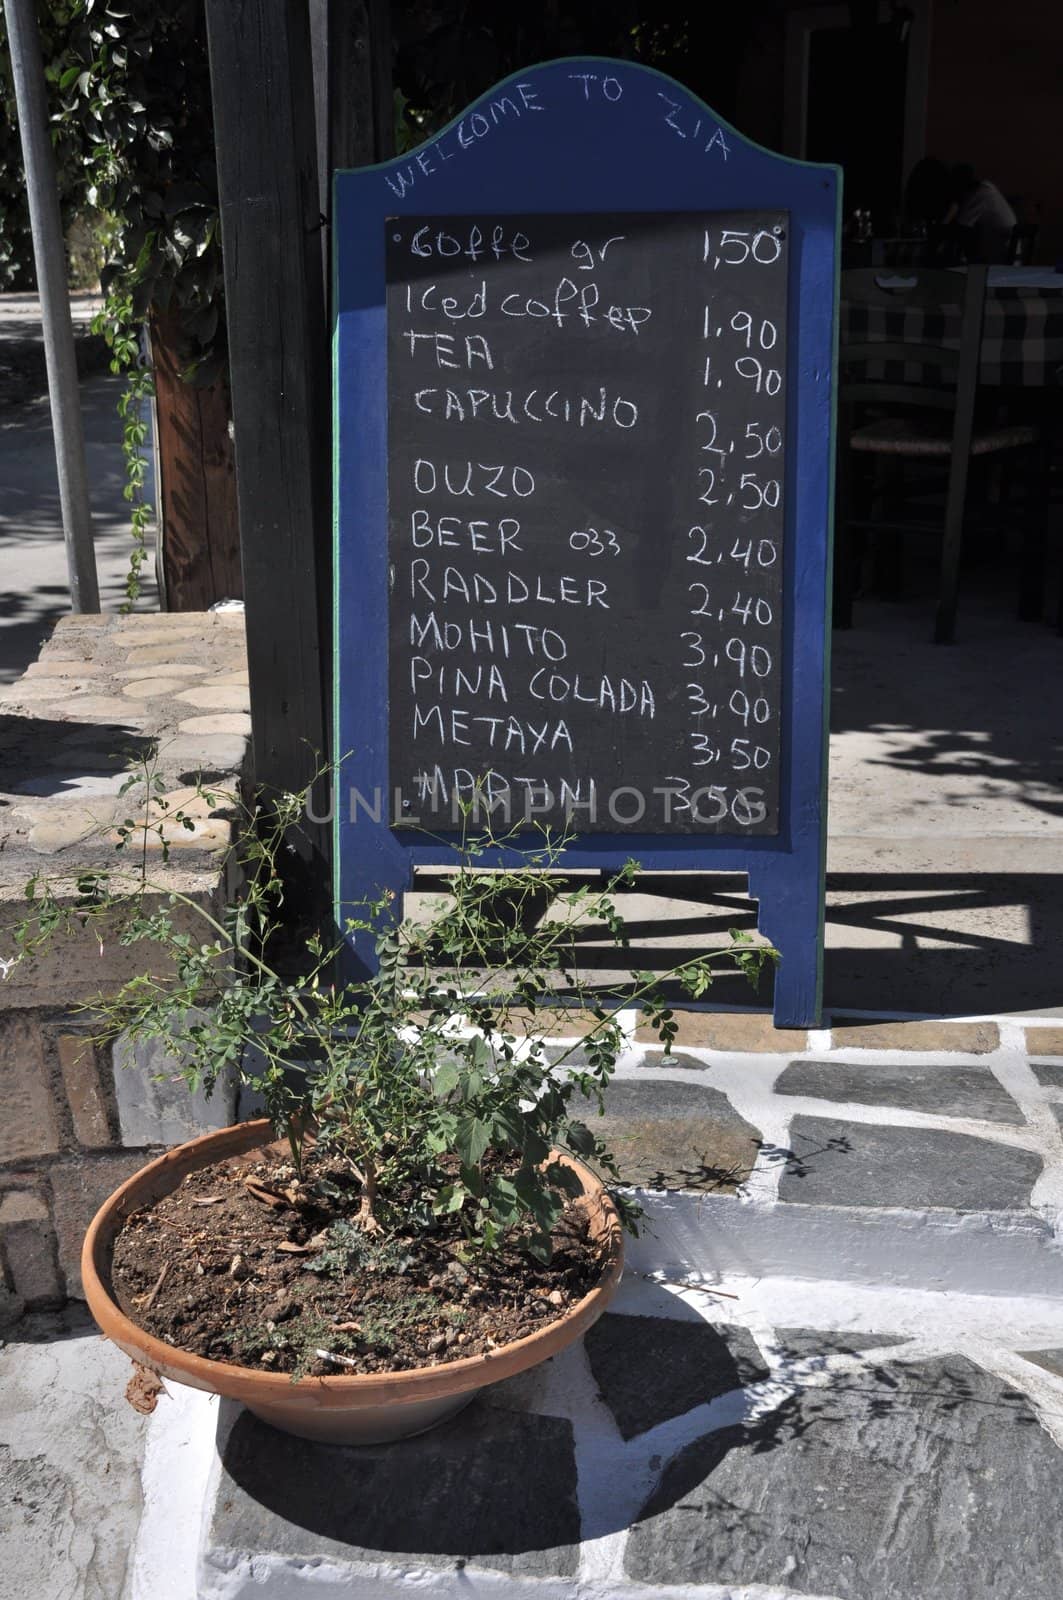 WELCOME TO ZIA
Coffe gr 1,50
Iced coffee 1.90
TEA 1.90
CAPUCCINO 2,50
OUZO 2,50
BEER 033 2,40
RADDLER 2,40
MOHITO 3,90
PINA COLADA 3,90
METAXA 3,50
MARTINI 350
UNLIMPHOTOS